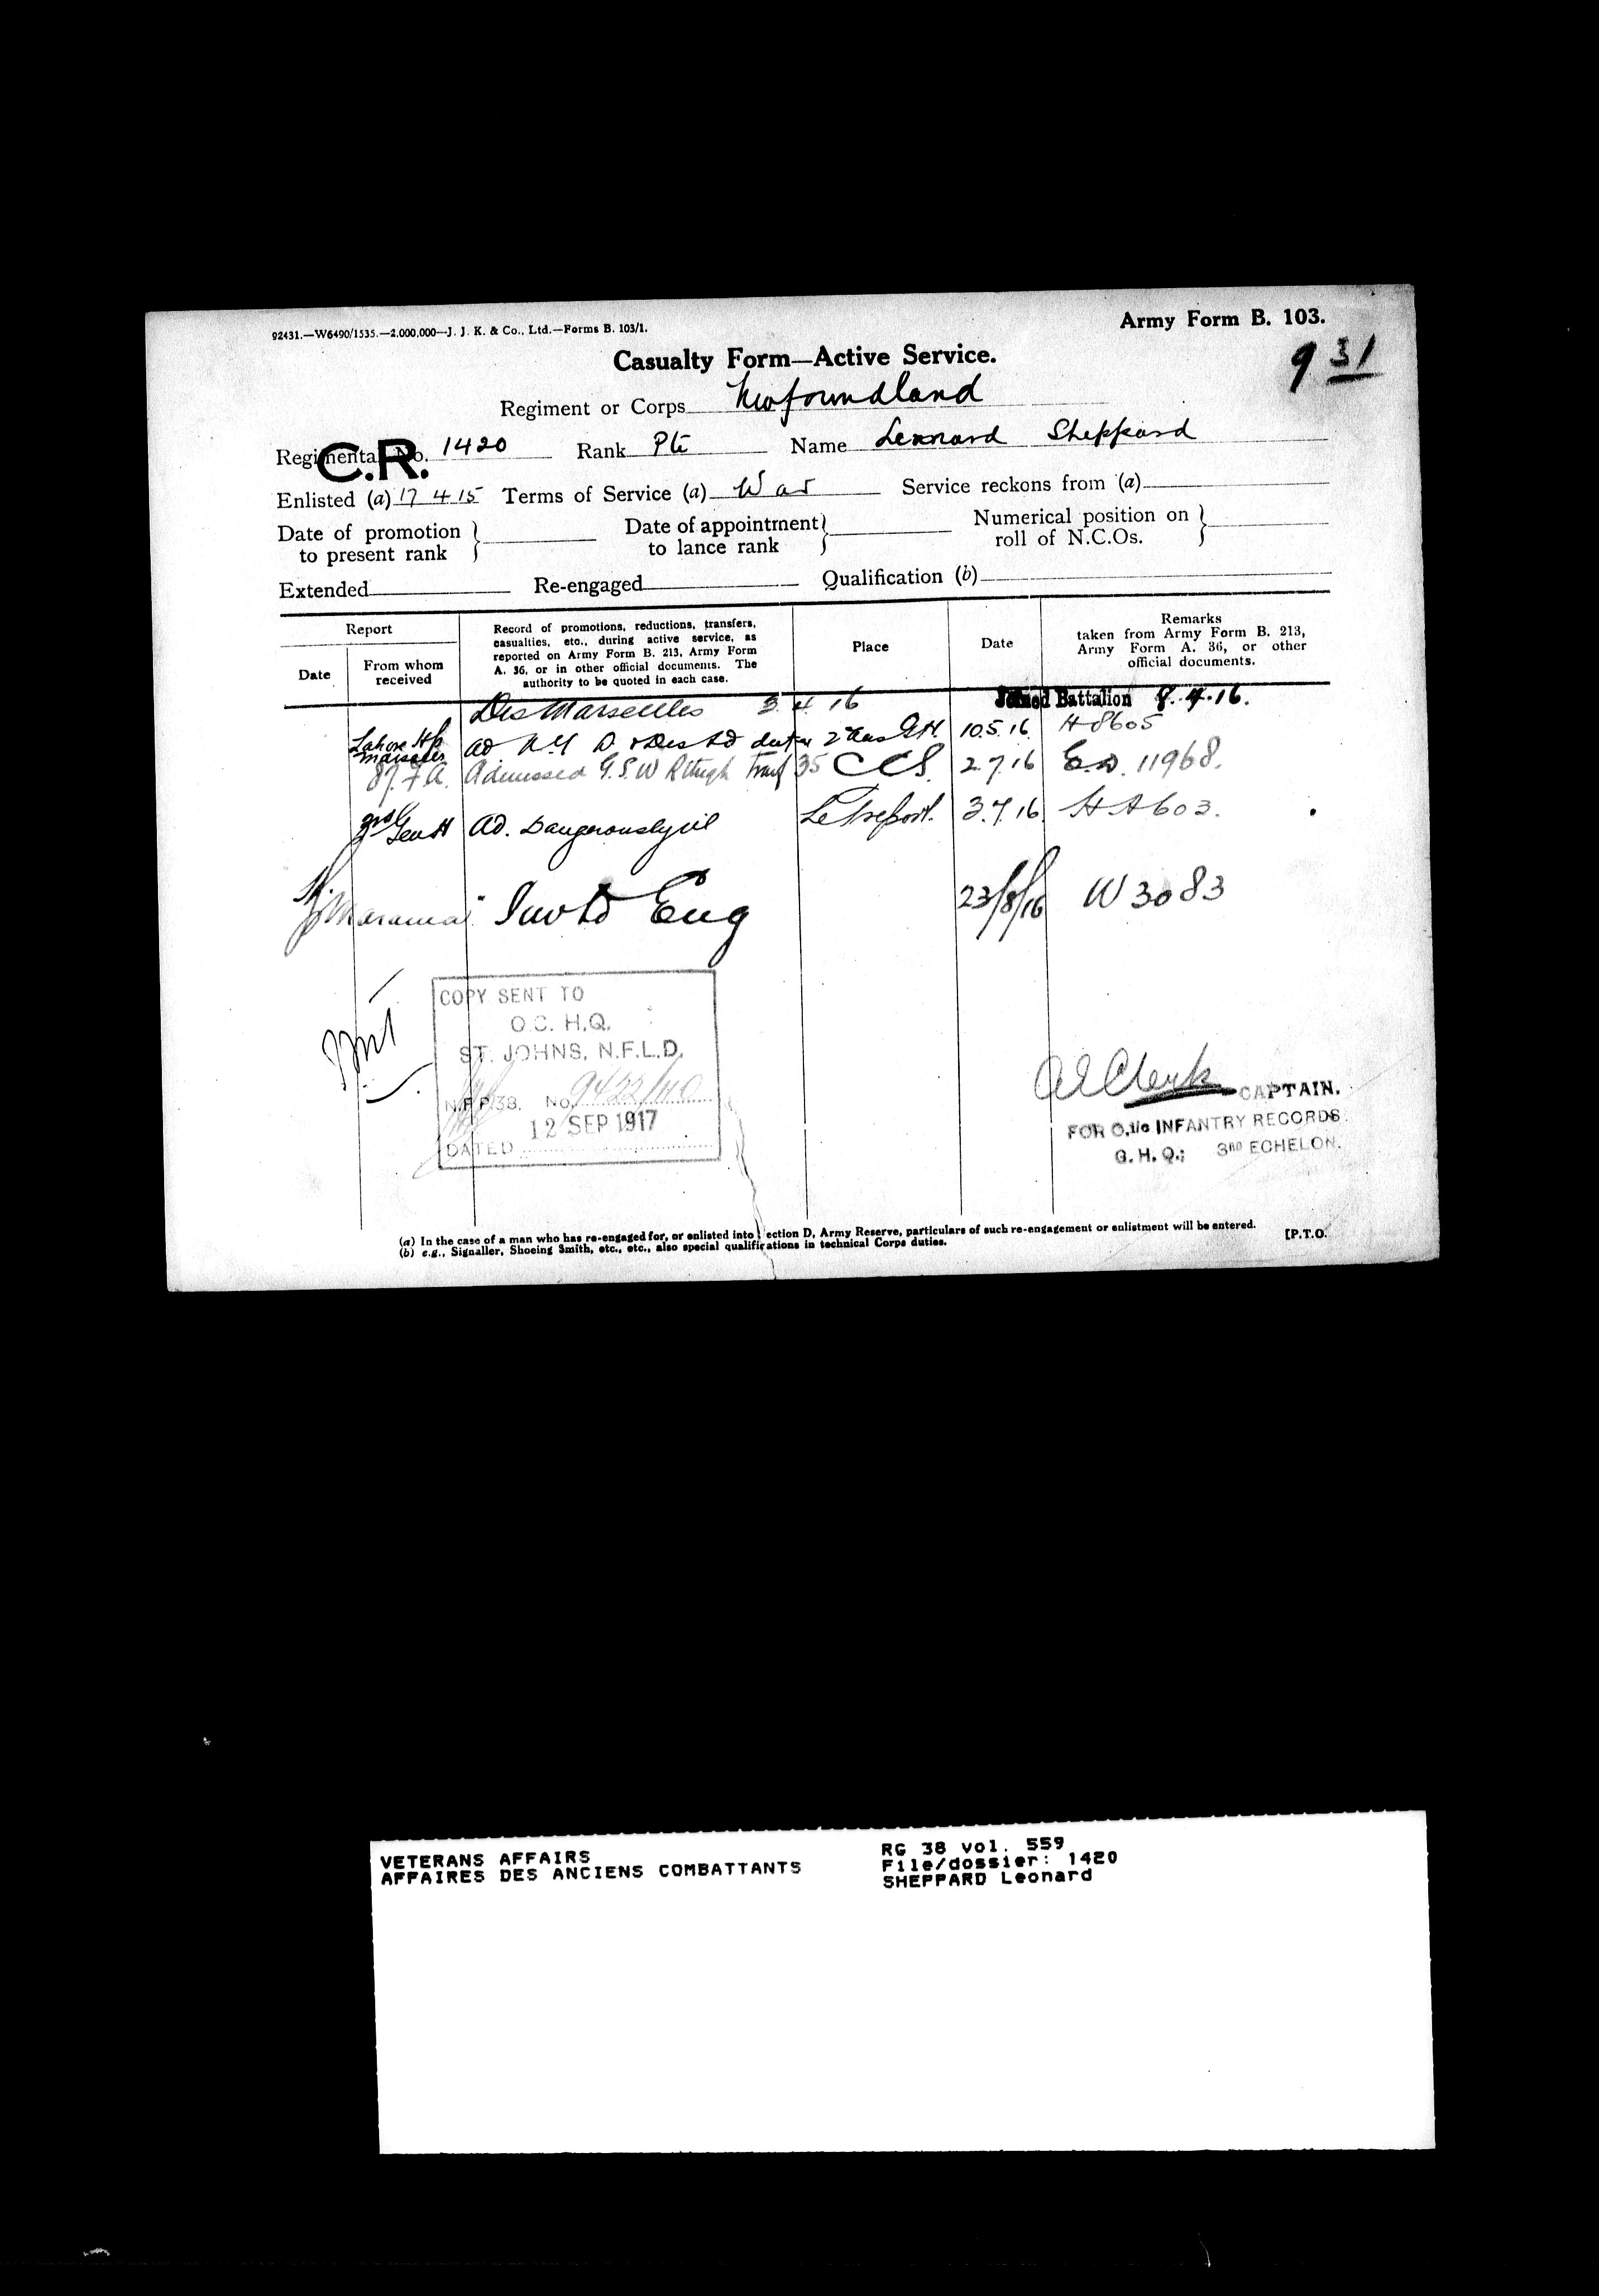 92431.—W6490/1535.—2,000,000—J. J. K. & Co., Ltd.—Forms B. 103/1.
Army Form B. 103.
9 31
Casualty Form—Active Service.
Regiment or Corps Newfoundland
C.R.
Regimental No. 1420 Rank Pte Name Lennard Sheppard
Enlisted (a) 17 4 15 Terms of Service (a) War Service reckons from (a)
Date of promotion to present rank } Date of appointment to lance rank } Numerical position on roll of N.C.Os. }
Extended Re-engaged Qualification (b)
Report
Date
From whom received
Record of promotions, reductions, transfers, casualties, etc., during active service, as reported on Army Form B. 213, Army Form A. 36, or in other official documents. The authority to be quoted in each case.
Place
Date
Remarks taken from Army Form B. 213, Army Form A. 36, or other official documents.
Dis Marseilles 3 4 16 Joined Battalion 8.4.16.
Lahore Marseilles ad N.Y.D. & Des to duty 10.5.16 H 8605
87. F.A. Admitted G.S.W R thigh Transf 35 CCS. 2.7.16 11968.
Gen H Ad. Dangerously ill Le Treport. 3.7.16 HA603.
Marama Invtd Eng 23/8/16 W 3083
COPY SENT TO
O.C. H.Q.
ST. JOHNS, N.F.L.D.
N.F.P/38. No. 9422/40
12 SEP 1917
DATED
CAPTAIN.
FOR O.i/c INFANTRY RECORDS.
G. H. Q.; 3RD ECHELON.
(a) In the case of a man who has re-engaged for, or enlisted into ection D, Army Reserve, particulars of such re-engagement or enlistment will be entered.
(b) e.g., Signaller, Shoeing Smith, etc., etc., also special qualifications in technical Corps duties.
[P.T.O.
VETERANS AFFAIRS
AFFAIRES DES ANCIENS COMBATTANTS
RG 38 vol. 559
File/dossier: 1420
SHEPPARD Leonard